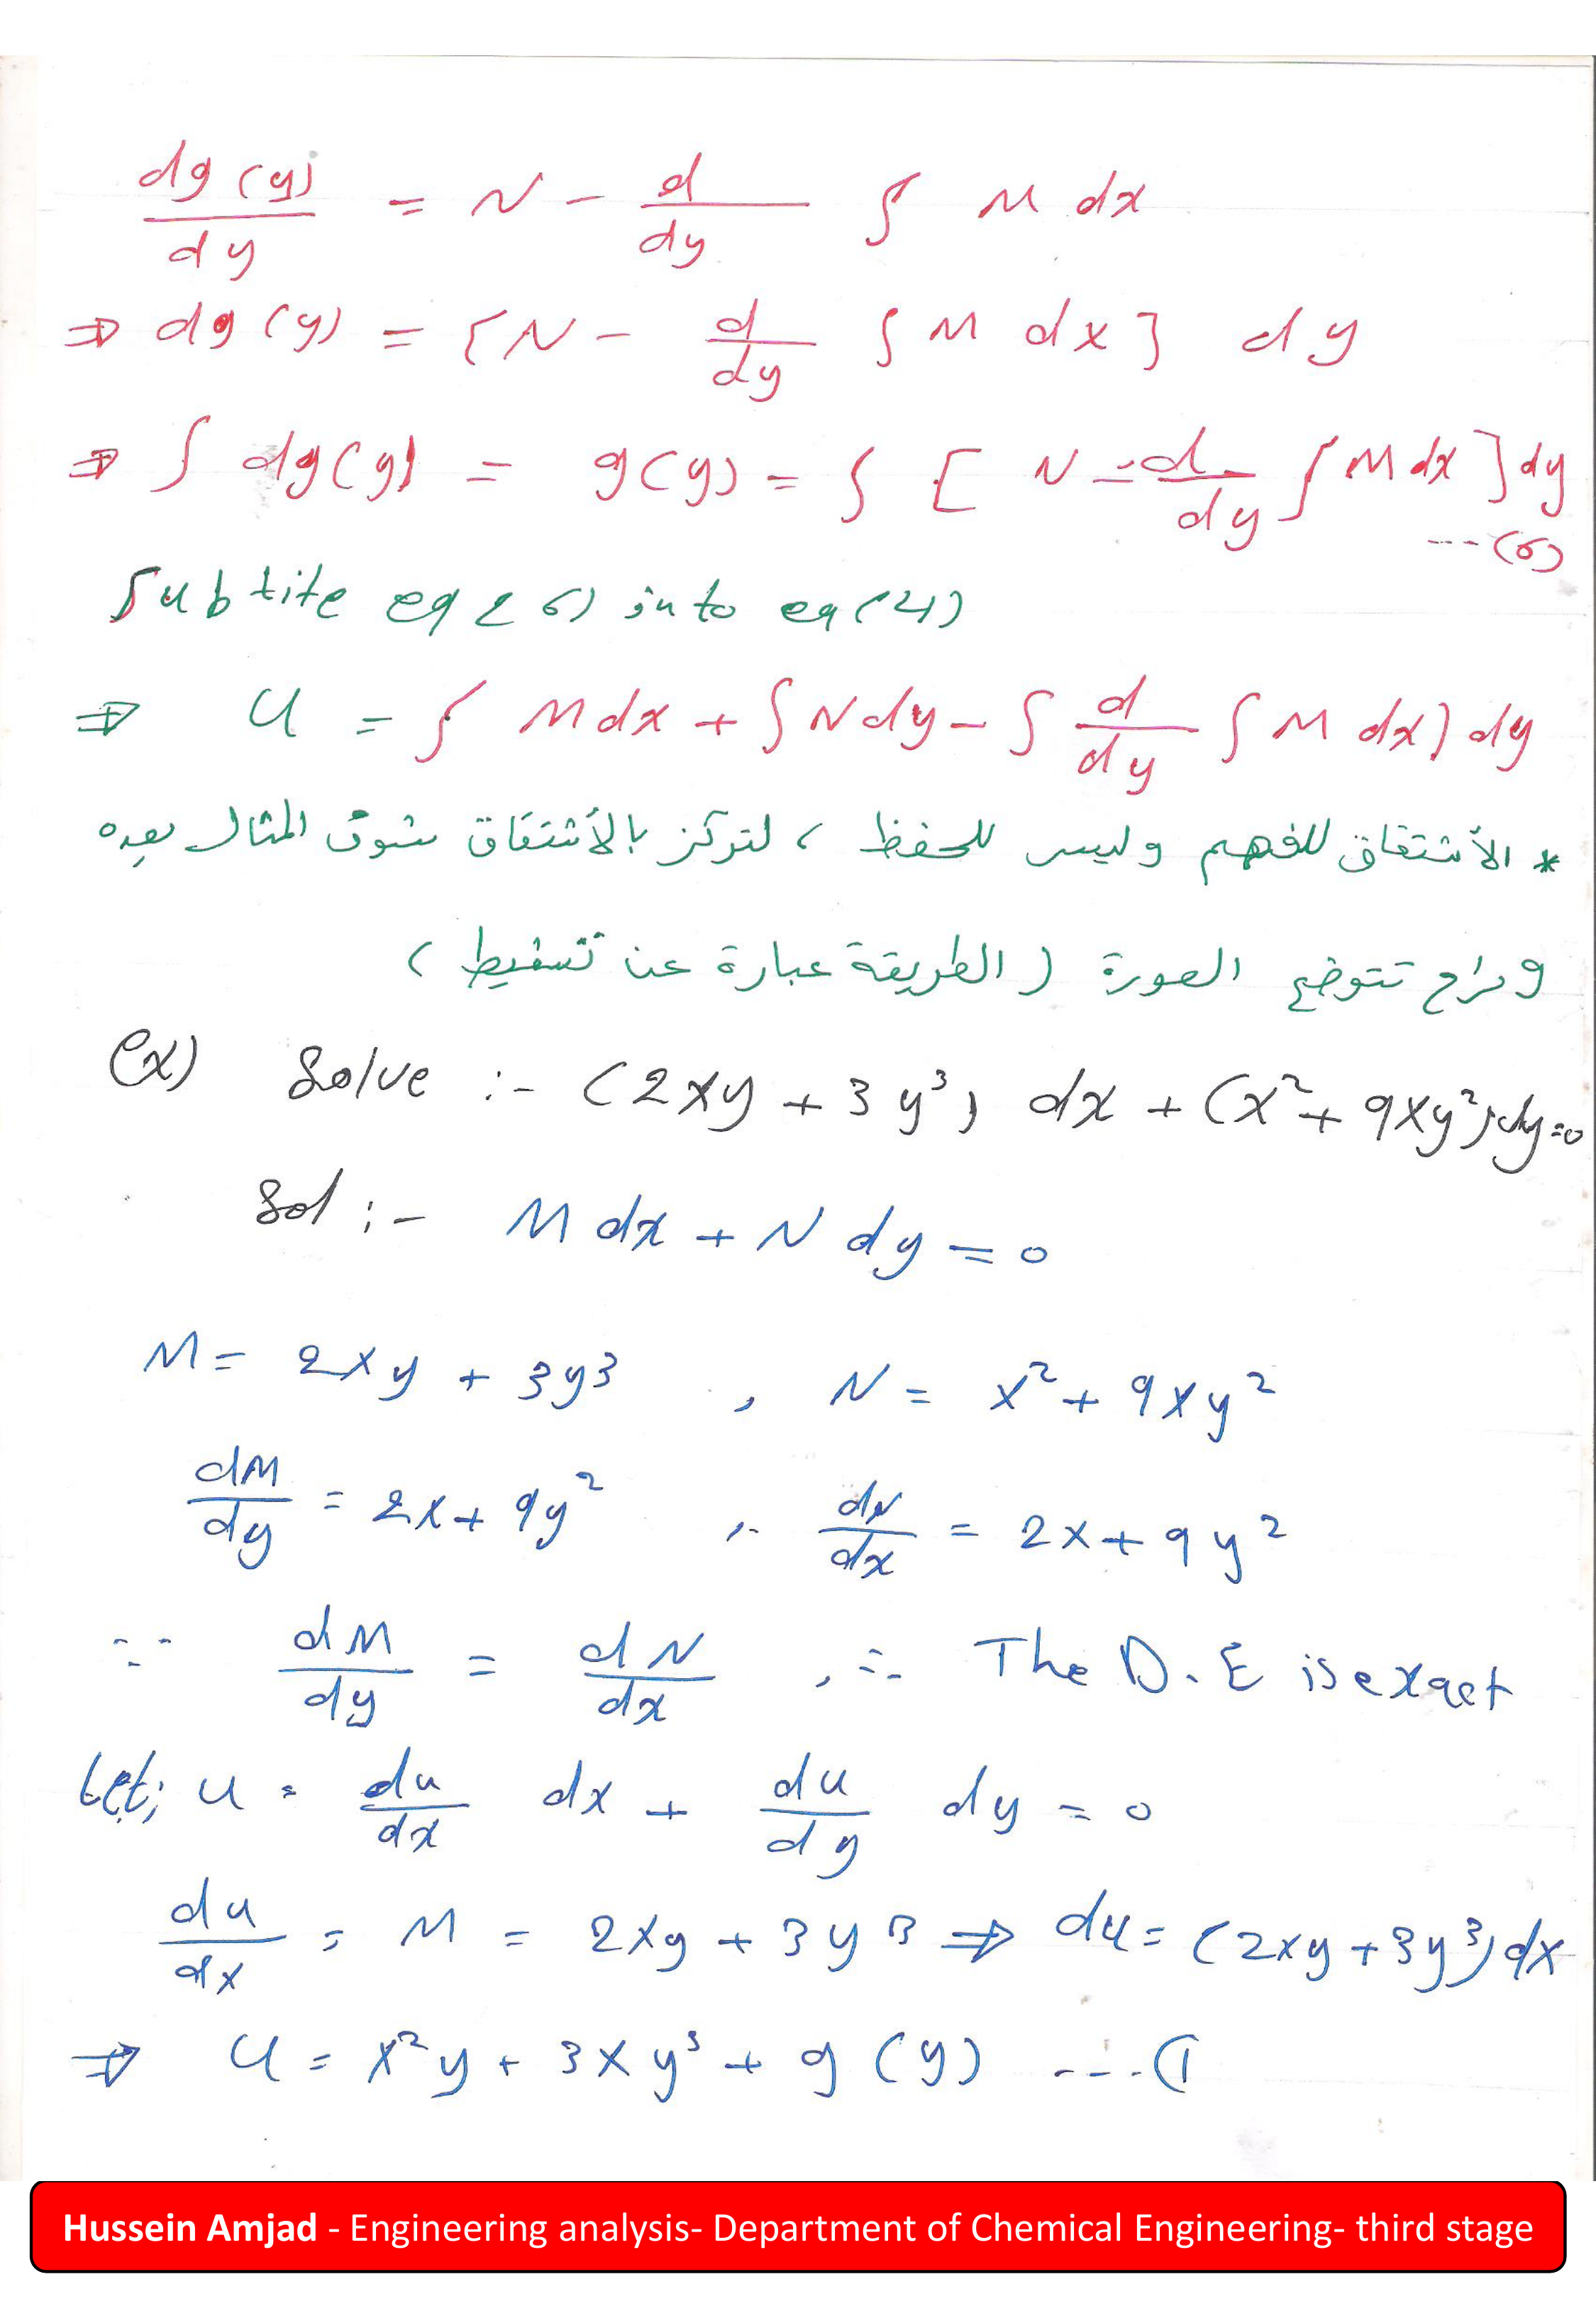 dg(y)/dy = N - d/dy ∫ M dx
⇒ dg(y) = [N - d/dy ∫ M dx] dy
⇒ ∫ dg(y) = g(y) = ∫ [N - d/dy ∫ M dx] dy
--- (6)
Subtite eq (6) into eq (4)
⇒ U = ∫ M dx + ∫ N dy - ∫ d/dy ∫ M dx) dy
* الأشتقاق للفهم وليس للحفظ ، لتركز بالأشتقاق شوف المثال بعده
وراح تتوضح الصورة (الطريقة عبارة عن تسفيط)
ex) Solve :- (2xy + 3y³) dx + (x² + 9xy²) dy = 0
Sol :- M dx + N dy = 0
M = 2xy + 3y3 , N = x² + 9xy²
dM/dy = 2x + 9y² , dN/dx = 2x + 9y²
∵ dM/dy = dN/dx , ∴ The D.E is exact
Let; u = du/dx dx + du/dy dy = 0
du/dx = M = 2xy + 3y3 ⇒ du = (2xy + 3y³) dx
⇒ U = x²y + 3xy³ + g(y) --- (1
Hussein Amjad - Engineering analysis- Department of Chemical Engineering- third stage